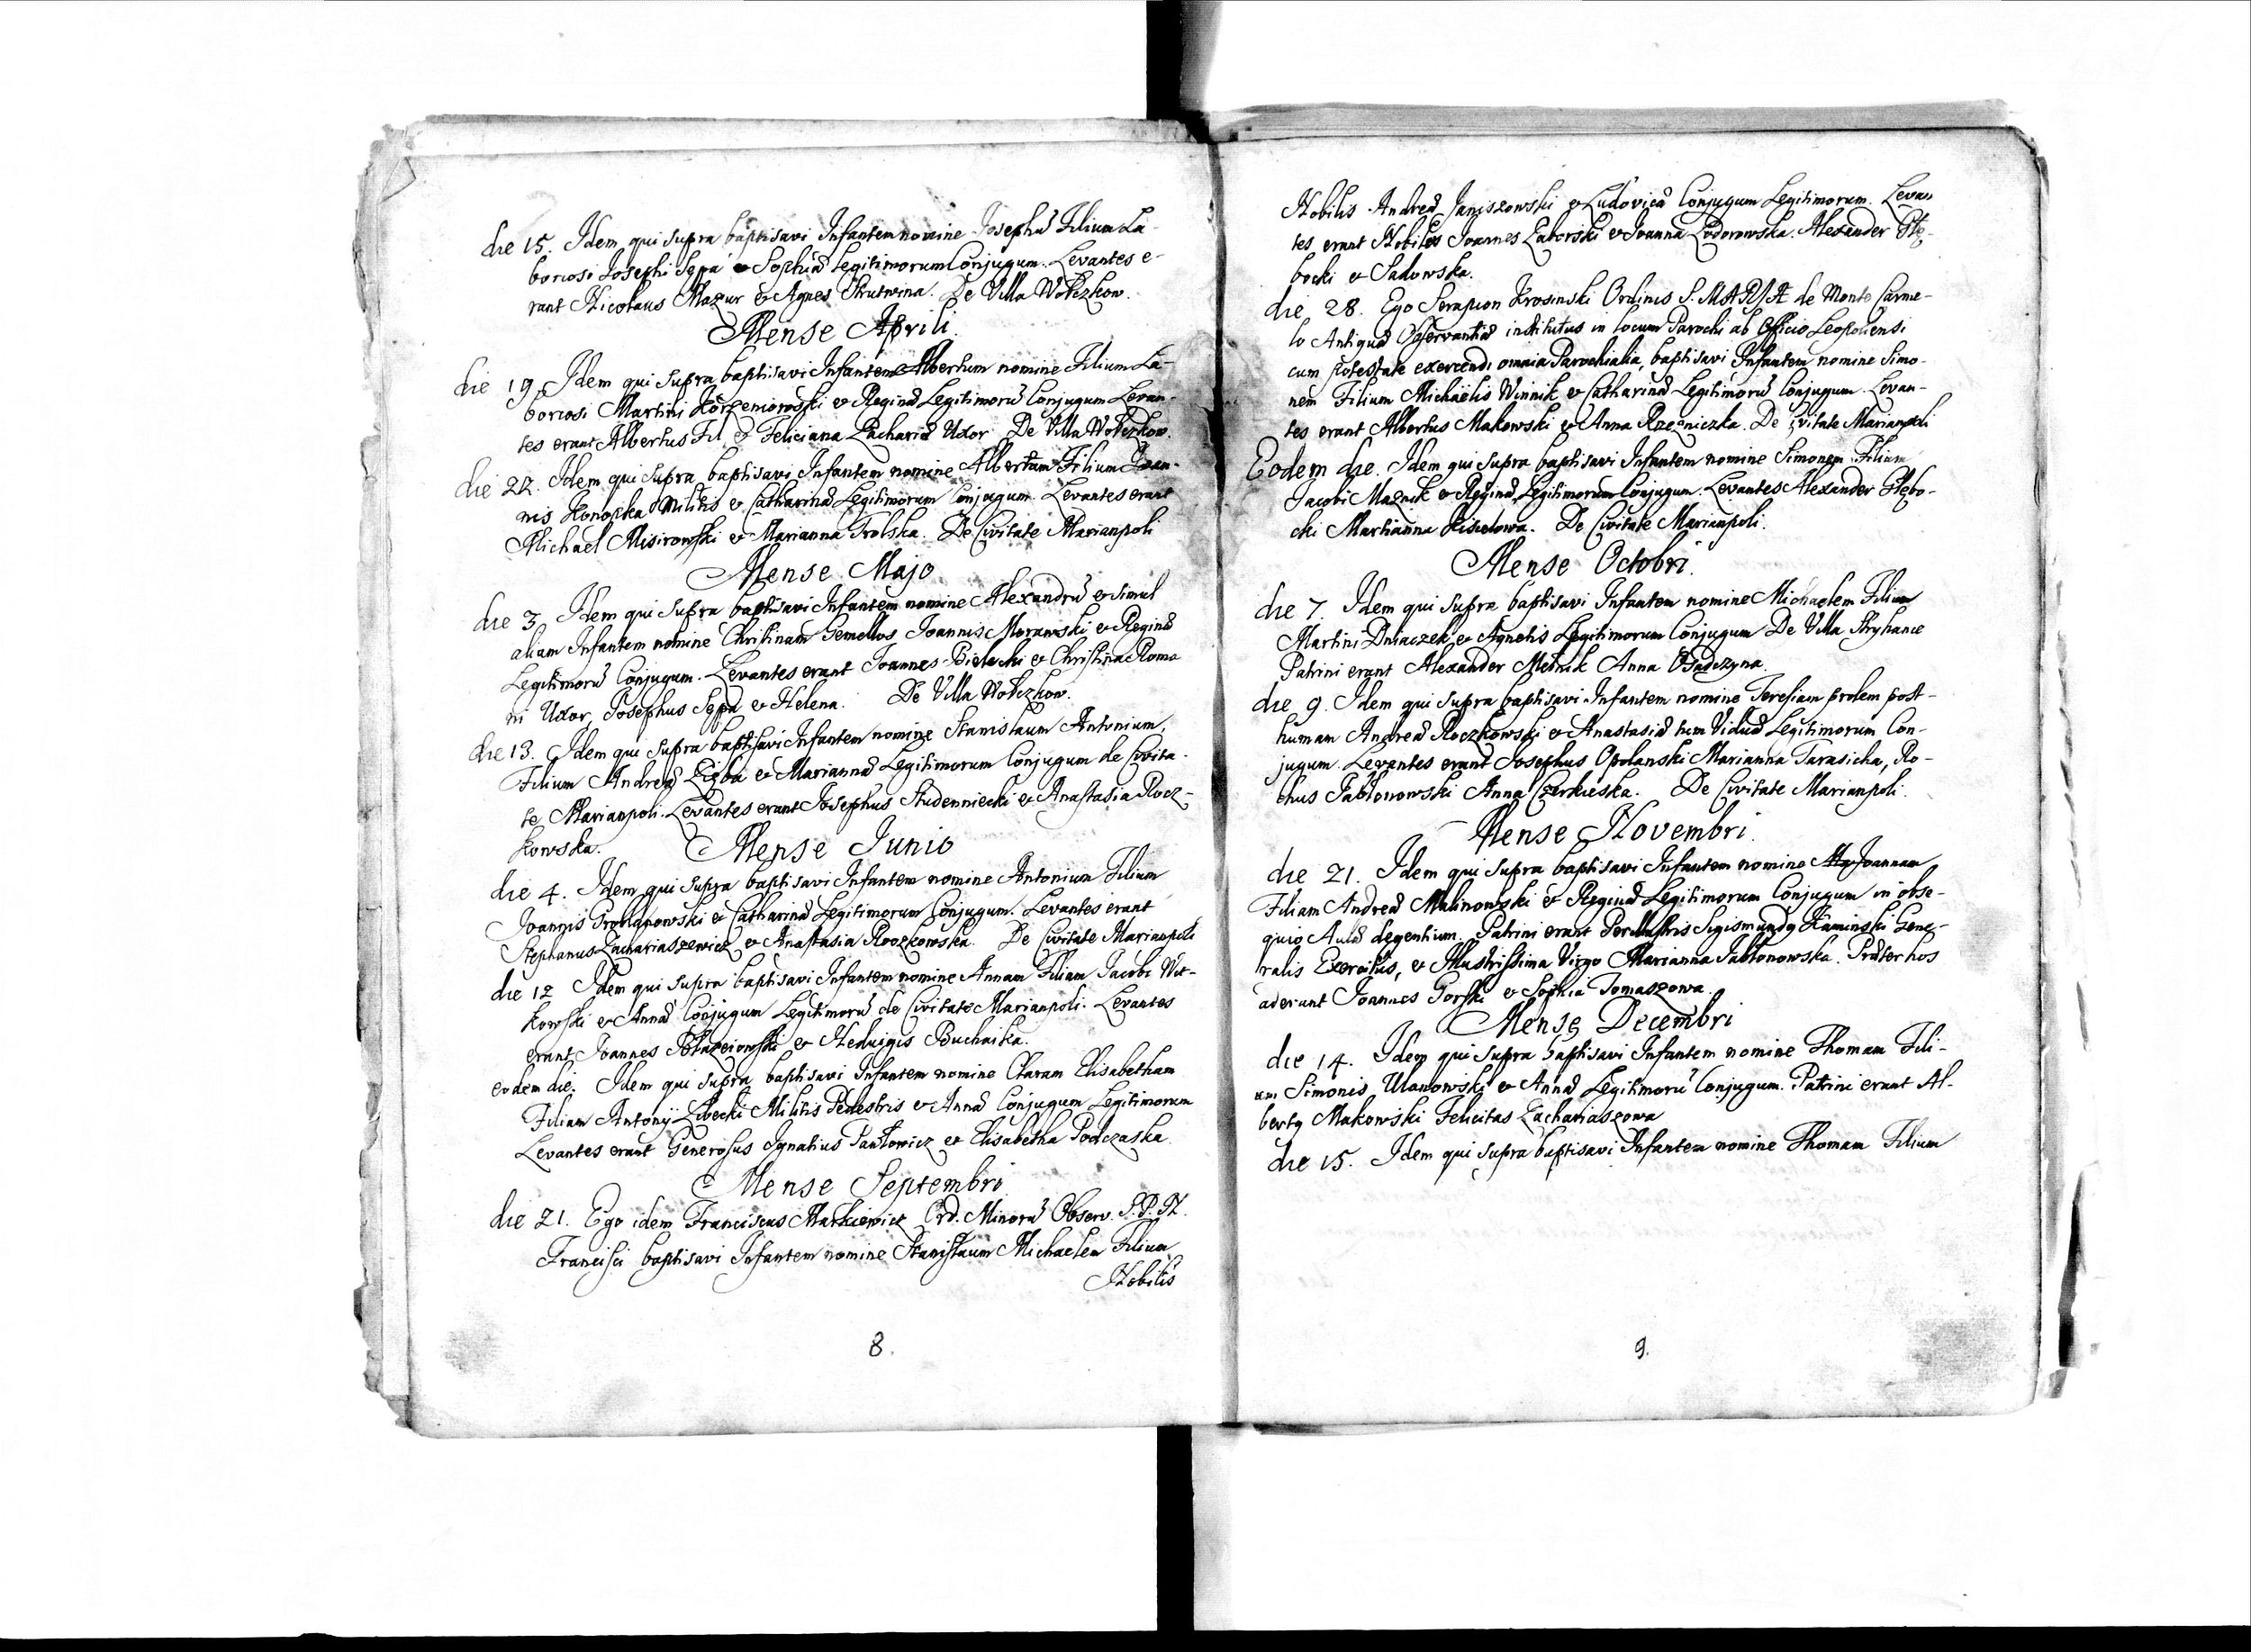 die 15. Idem qui supra baptisavi Infantem nomine Josephū Filium La-
boriosi Josephi Sępa & Sophiæ Legitimorum Conjugum. Levantes e-
rant Nicolaus Mazur & Agnes Strutwina. De Villa Wołczkow.
Mense Aprili.
die 19. Idem qui supra baptisavi Infantem Albertum nomine Filium La-
boriosi Martini Korzeniowski & Reginæ Legitimorū Conjugum Levan-
tes erant Albertus Fil & Feliciana Zachariæ Uxor De Villa Wołczkow.
die 22. Idem qui supra baptisavi Infantem nomine Albertum Filium Joan-
nis Konopka Militis & Catharinæ Legitimorum Conjugum. Levantes erant
Michael Misirowski & Marianna Trolska. De Civitate Marianpoli
Mense Majo
die 3 Idem qui supra baptisavi Infantem nomine Alexandrū & simul
aliam Infantem nomine Christinam Gemellos Joannis Morawski & Reginæ
Legitimorū Conjugum. Levantes erant Joannes Bielecki & Christina Roma
ni Uxor, Josephus Sępa & Helena. De Villa Wołczkow.
die 13. Idem qui supra baptisavi Infantem nomine Stanislaum Antonium,
Filium Andreæ Zięba & Mariannæ Legitimorum Conjugum de Civita-
te Marianpoli. Levantes erant Josephus Studenniecki & Anastasia Rocz-
kowska.
Mense Junio
die 4. Idem qui supra baptisavi Infantem nomine Antonium Filium
Joannis Trochanowski & Catharinæ Legitimorum Conjugum. Levantes erant
Stephanus Zachariaszewicz & Anastasia Roczkowska. De Civitate Marianpoli
die 12 Idem qui supra baptisavi Infantem nomine Annam Filiam Jacobi Wit-
kowski & Annæ Conjugum Legitimorū de Civitate Marianpoli. Levantes
erant Joannes Błazeiowski & Hedvigis Buchaika.
eodem die. Idem qui supra baptisavi Infantem nomine Claram Elisabetham
Filiam Antonij Zibecki Militis Pedestris & Annæ Conjugum Legitimorum
Levantes erant Generosus Ignatius Pawłowicz & Elisabetha Podczaska.
Mense Septembri
die 21. Ego idem Franciscus Markiewicz Ord. Minorū Observ. S. P. N.
Francisci baptisavi Infantem nomine Stanislaum Michaelem Filium
Nobilis
8.
Nobilis Andreæ Janiszowski & Ludovicæ Conjugum Legitimorum. Levan
tes erant Nobiles Joannes Zaborski & Joanna Zodorowska. Alexander Głę-
bocki & Sadowska.
die 28. Ego Serapion Krosinski Ordinis S. MARIÆ de Monte Carme-
lo Antiquæ Observantiæ institutus in locum Parochi ab Officio Leopoliensi
cum potestate exercendi omnia Parochialia, baptisavi Infantem nomine Simo-
nem Filium Michaëlis Winnik & Catharinæ Legitimorū Conjugum. Levan-
tes erant Albertus Makowski & Anna Rzeźniczka. De Civitate Marianpoli
Eodem die. Idem qui supra baptisavi Infantem nomine Simonem Filium
Jacobi Maznik & Reginæ Legitimorum Conjugum. Levantes Alexander Głębo-
cki Martianna Kisielowa. De Civitate Marianpoli.
Mense Octobri.
die 7. Idem qui supra baptisavi Infantem nomine Michaelem Filium
Martini Dniaczek & Agnetis Legitimorum Conjugum De Villa Stryhance
Patrini erant Alexander Melnik Anna Osadczyna.
die 9. Idem qui supra baptisavi Infantem nomine Teresiam prolem post-
humam Andreæ Roczkowski & Anastasiæ tum Viduæ Legitimorum Con-
jugum. Levantes erant Josephus Opolanski Marianna Tarasicha, Ro-
chus Jabłonowski Anna Czerkieska. De Civitate Marianpoli.
Mense Novembri.
die 21. Idem qui supra baptisavi Infantem nomine Joannam
Filiam Andreæ Malinowski & Reginæ Legitimorum Conjugum in obse-
quio Aulæ degentium. Patrini erant Perillustris Sigismundq Kaminski Gene-
ralis Exercitûs, & Illustrissima Virgo Marianna Jabłonowska. Præter hos
aderant Joannes Gorski & Sophia Tomaszowa.
Mense Decembri
die 14. Idem qui supra baptisavi Infantem nomine Thomam Fili-
um Simonis Ulanowski & Annæ Legitimorū Conjugum. Patrini erant Al-
bertq Makowski Felicitas Zachariaszowa
die 15. Idem qui supra baptisavi Infantem nomine Thomam Filium
9.